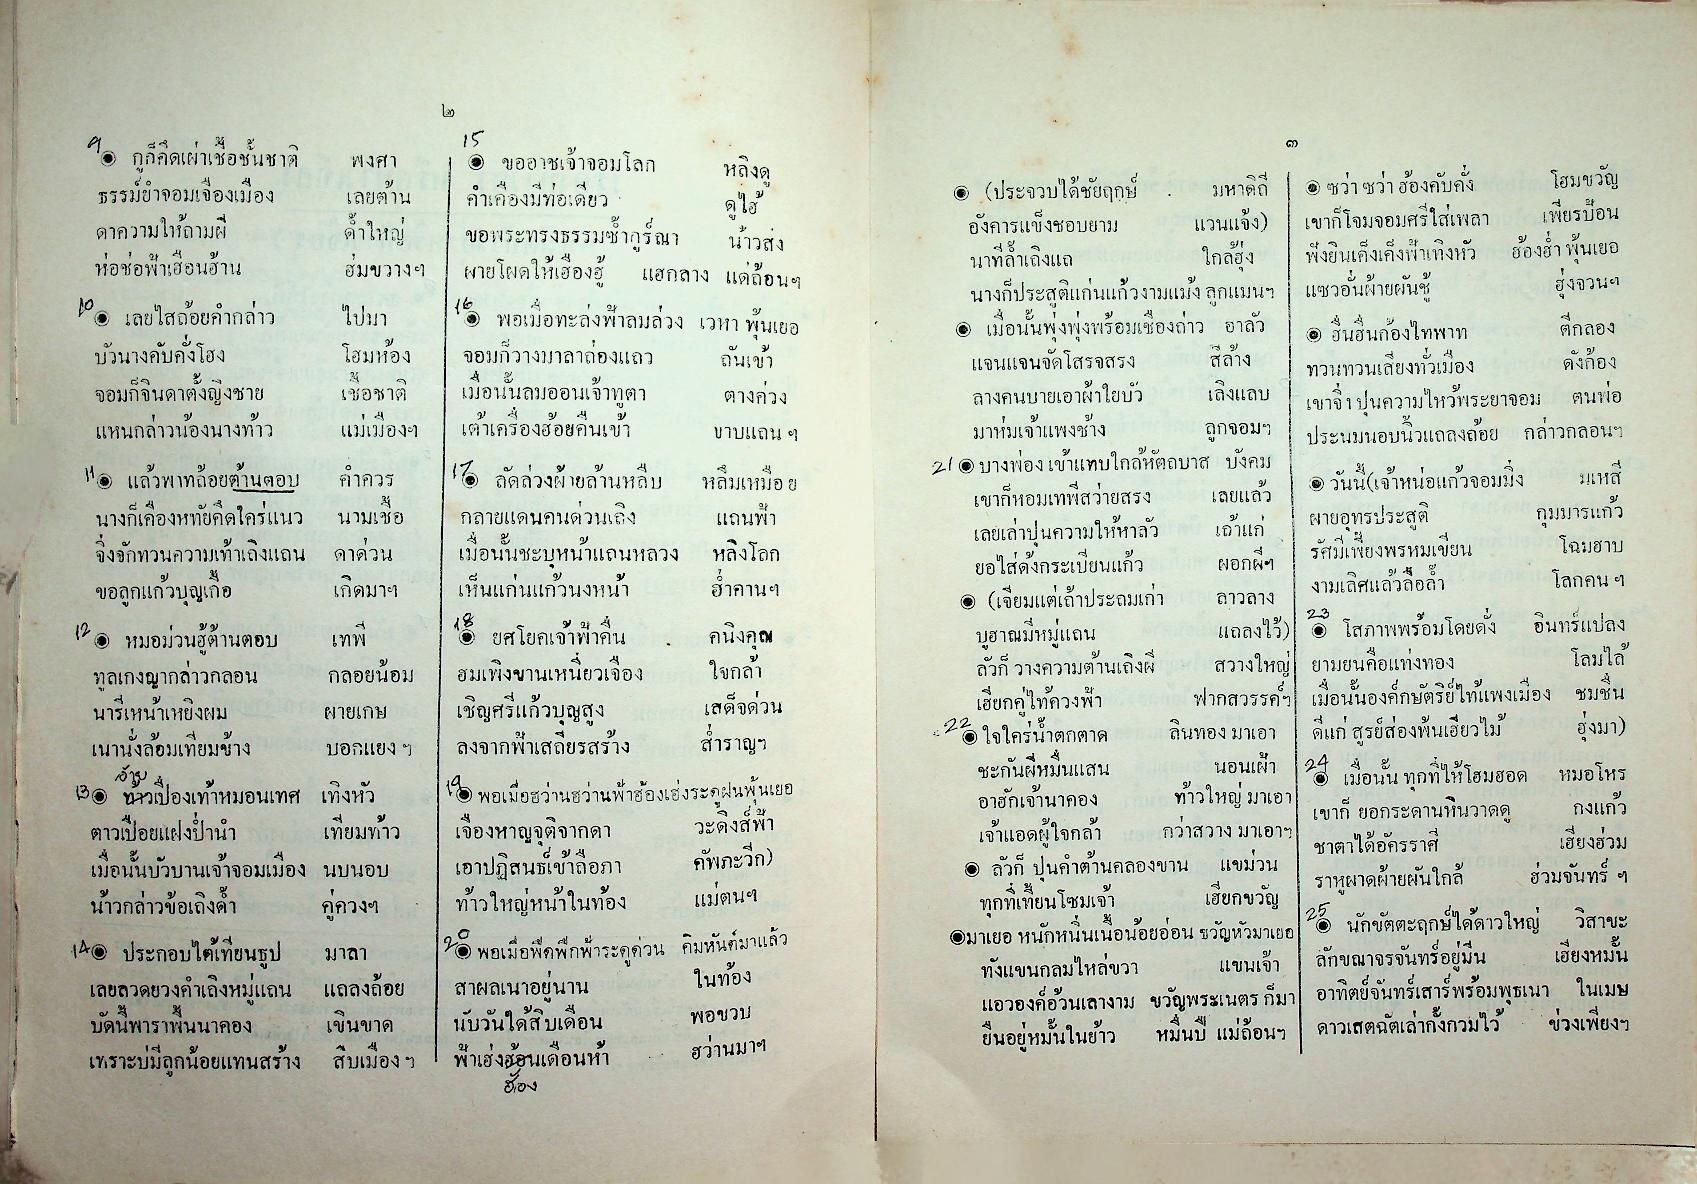 ๒
9 ◉ กูก็คึดเผ่าเชื้อชั้นชาติ พงศา
ธรรม์ยำจอมเจืองเมือง เลยต้าน
ดาความให้ถามผี ด้ำใหญ่
ห่อช่อฟ้าเฮือนฮ้าน ฮ่มขวางฯ
10 ◉ เลยไสถ้อยคำกล่าว ไปมา
บัวนางคับคั่งโฮง โฮมห้อง
จอมก็จินดาตั้งญิงชาย เชื้อชาติ
แหนกล่าวน้องนางท้าว แม่เมืองฯ
11 ◉ แล้วพาทถ้อยต้านตอบ คำควร
นางก็เคืองหทัยคึดใคร่แนว นามเชื้อ
จิ่งจักทวนความเท้าเถิงแถน ดาด่วน
ขอลูกแก้วบุญเกื้อ เกิดมาฯ
12 ◉ หมอม่วนฮู้ต้านตอบ เทพี
ทูลเกงญากล่าวกลอน กลอยน้อม
นารีเหน้าเหยิงผม ผายเกษ
เนานั่งล้อมเทียมข้าง บอกแยงฯ
อ้าย
13 ◉ ท้าวเปื่องเท้าหมอนเทศ เทิงหัว
ตาวเปือยแฝงป่ำนำ เทียมท้าว
เมื่อนั้นบัวบานเจ้าจอมเมือง นบนอบ
น้าวกล่าวข้อเถิงด้ำ คู่ควงฯ
14 ◉ ประกอบไต้เทียนธูป มาลา
เลยลวดยวงคำเถิงหมู่แถน แถลงถ้อย
บัดนี้พาราพื้นนาคอง เขินขาด
เพราะบ่มีลูกน้อยแทนสร้าง สืบเมืองฯ
15 ◉ ขออาชเจ้าจอมโลก หลิงดู
คำเคืองมีท่อเดียว ดูไฮ้
ขอพระทรงธรรมซ้ำกูร์ณา น้าวส่ง
ผายโผดให้เฮืองฮู้ แฮกลาง แด่ถ้อนฯ
16 ◉ พอเมื่อทะลังฟ้าลมล่วง เวหา พุ้นเยอ
จอมก็วางมาลาล่องแถว ถันเข้า
เมื่อนั้นลมออนเจ้าทูตา ตางค่วง
เต้าเครื่องฮ้อยคืนเข้า ขาบแถนฯ
17 ◉ ลัดล่วงผ้ายล้านหลืบ หลืมเหมือย
กลายแดนคนด่วนเถิง แถนฟ้า
เมื่อนั้นชะบุหน้าแถนหลวง หลิงโลก
เห็นแก่นแก้วนงหน้า ฮ่ำคานฯ
18 ◉ ยศโยคเจ้าฟ้าคื่น คนิงคุณ
ฮมเพิงขานเหนี่ยวเจือง ใจกล้า
เชิญศรีแก้วบุญสูง เสด็จด่วน
ลงจากฟ้าเสถียรสร้าง สำราญฯ
19 ◉ พอเมื่อฮว่านฮว่านฟ้าฮ้องเฮ่งระดูฝนพุ้นเยอ
เจืองหาญจุติจากดา วะดึงส์ฟ้า
เอาปฏิสนธ์เข้าลือภา คัพภะวีก)
ท้าวใหญ่หน้าในท้อง แม่ตนฯ
20 ◉ พอเมื่อพึดพึกฟ้าระดูด่วน คิมหันต์มาแล้ว
สาผลเนาอยู่นาน ในท้อง
นับวันได้สิบเดือน พอขวบ
ฟ้าเฮ่งฮ้อนเดือนห้า ฮว่านมาฯ
ฮ้อง
๓
◉ (ประจวบได้ชัยฤกษ์ มหาดิถี
อังคารแข็งชอบยาม แวนแจ้ง)
นาทีล้ำเถิงแถ ใกล้ฮุ่ง
นางก็ประสูติแก่นแก้วงามแม้ง ลูกแมนฯ
◉ เมื่อนั้นพุ่งพุ่งพร้อมเชืองถ่าว อาลัว
แจนแจนจัดโสรจสรง สีล้าง
ลางคนบายเอาผ้าใยบัว เลิงแลบ
มาห่มเจ้าแพงช้าง ลูกจอมฯ
21 ◉ บางพ่อง เข้าแทบใกล้หัตถบาส บังคม
เขาก็หอมเทพีสว่ายสรง เลยแล้ว
เลยเล่าปุนความให้หาลัว เถ้าแก่
ยอไส่ด้งกระเบียนแก้ว ผอกผีฯ
◉ (เจียมแต่เถ้าประถมเก่า ลาวลาง
บูฮาณมีหมู่แถน แถลงไว้)
ลัวก็ วางความต้านเถิงผี สวางใหญ่
เฮียกคู่ไท้ดวงฟ้า ฟากสวรรค์ฯ
22 ◉ ใจใคร่น้ำตกตาด ลินทอง มาเอา
ชะกันผีหมื่นแสน นอนเฝ้า
อาฮักเจ้านาคอง ท้าวใหญ่ มาเอา
เจ้าแอดผู้ใจกล้า กว่าสวาง มาเอาฯ
◉ ลัวก็ ปุนคำต้านคลองขาน แขม่วน
ทุกที่เทียนโซมเจ้า เฮียกขวัญ
◉มาเยอ หนักหนิ่นเนื้อน้อยอ่อน ขวัญหัวมาเยอ
ทั่งแขนกลมไหล่ขวา แขนเจ้า
แอวองค์อ้วนเลางาม ขวัญพระเนตร ก็มา
ยืนอยู่หมั้นในย้าว หมื่นปี แม่ล้อนฯ
◉ ซว่า ซว่า ฮ้องคับคั่ง โฮมขวัญ
เขาก็โจมจอมศรีใส่เพลา เพียรป้อน
ฟังยินเค็งเค็งฟ้าเทิงหัว ฮ้องฮ่ำ พุ้นเยอ
แซวอั่นผ้ายผันชู้ ฮุ่งจวนฯ
◉ ฮื่นฮื่นก้องไทพาท ตีกลอง
ทวนทวนเสียงทั่วเมือง ดังก้อง
เขาจิ่ง ปุนความไหว้พระยาจอม ตนพ่อ
ประนมนอบนิ้วแถลงถ้อย กล่าวกลอนฯ
◉ วันนี้(เจ้าหน่อแก้วจอมมิ่ง มเหสี
ผายอุทรประสูติ กุมมารแก้ว
รัศมีเพี้ยงพรหมเขียน โฉมฮาบ
งามเลิศแล้วลือล้ำ โลกคนฯ
23 ◉ โสภาพพร้อมโดยดั่ง อินทร์แปลง
ยามยนคือแท่งทอง โลมไล้
เมื่อนั้นองค์กษัตริย์ไท้แพงเมือง ชมชื่น
ดีแก่ สูรย์ส่องพ้นเฮียวไม้ ฮุ่งมา)
24 ◉ เมื่อนั้น ทุกที่ให้โฮมฮอด หมอโหร
เขาก็ ยอกระดานหินวาดดู กงแก้ว
ชาตาได้อัครราศี เฮียงฮ่วม
ราหูผาดผ้ายผันใกล้ ฮ่วมจันทร์ฯ
25 ◉ นักขัตตะฤกษ์ได้ดาวใหญ่ วิสาขะ
ลักขณาจรจันทร์อยู่มีน เฮียงหมั้น
อาทิตย์จันทร์เสาร์พร้อมพุธเนา ในเมษ
ดาวเสตฉัตเล่ากั้งกวมไว้ ข่วงเพียงฯ